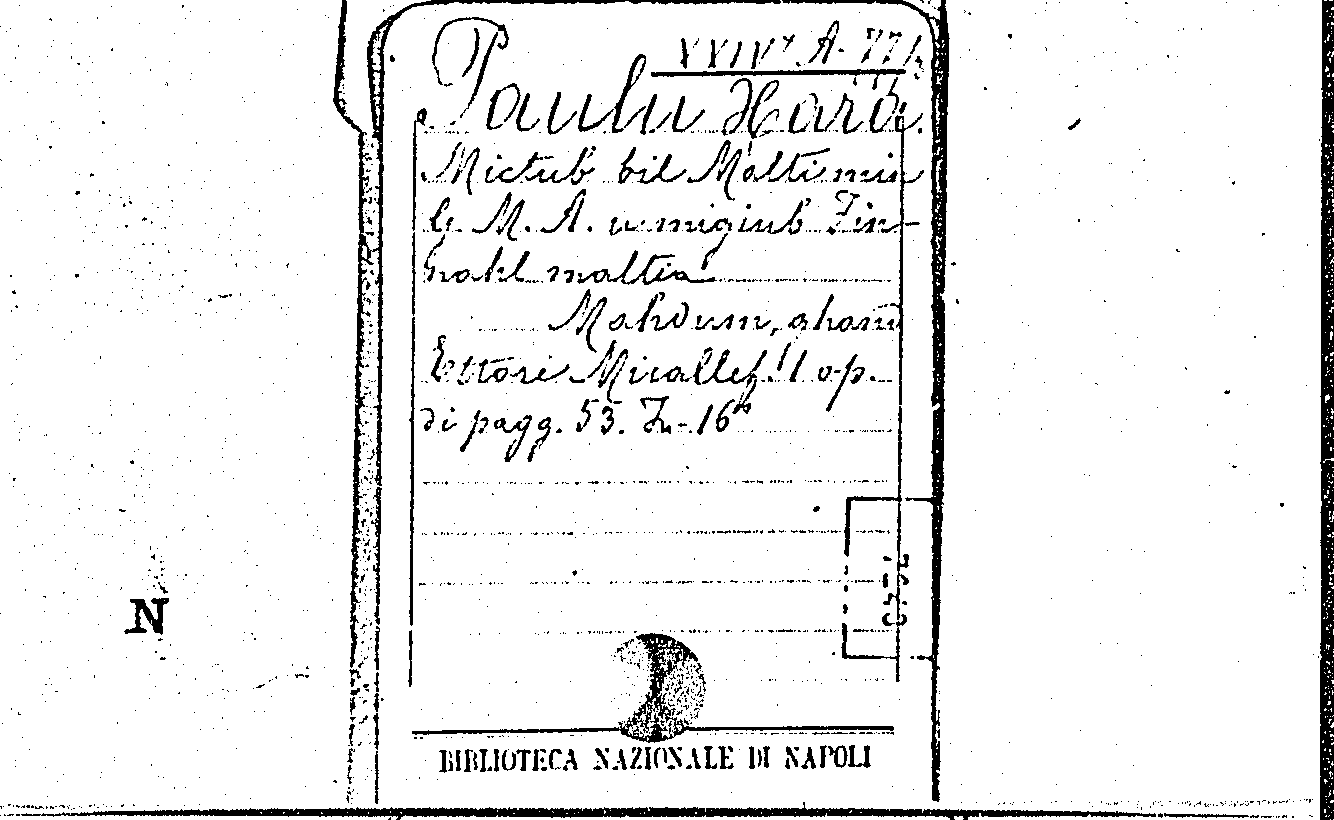 XXIVª A. 77/3
Paulu Xara.
Mictub bil Malti min
G. M. A. u migiub Fin-
nakl maltia
Mahdum, ghand
Ettore Micallef. 1 op.
di pagg. 53. In-16º
BIBLIOTECA NAZIONALE DI NAPOLI
N